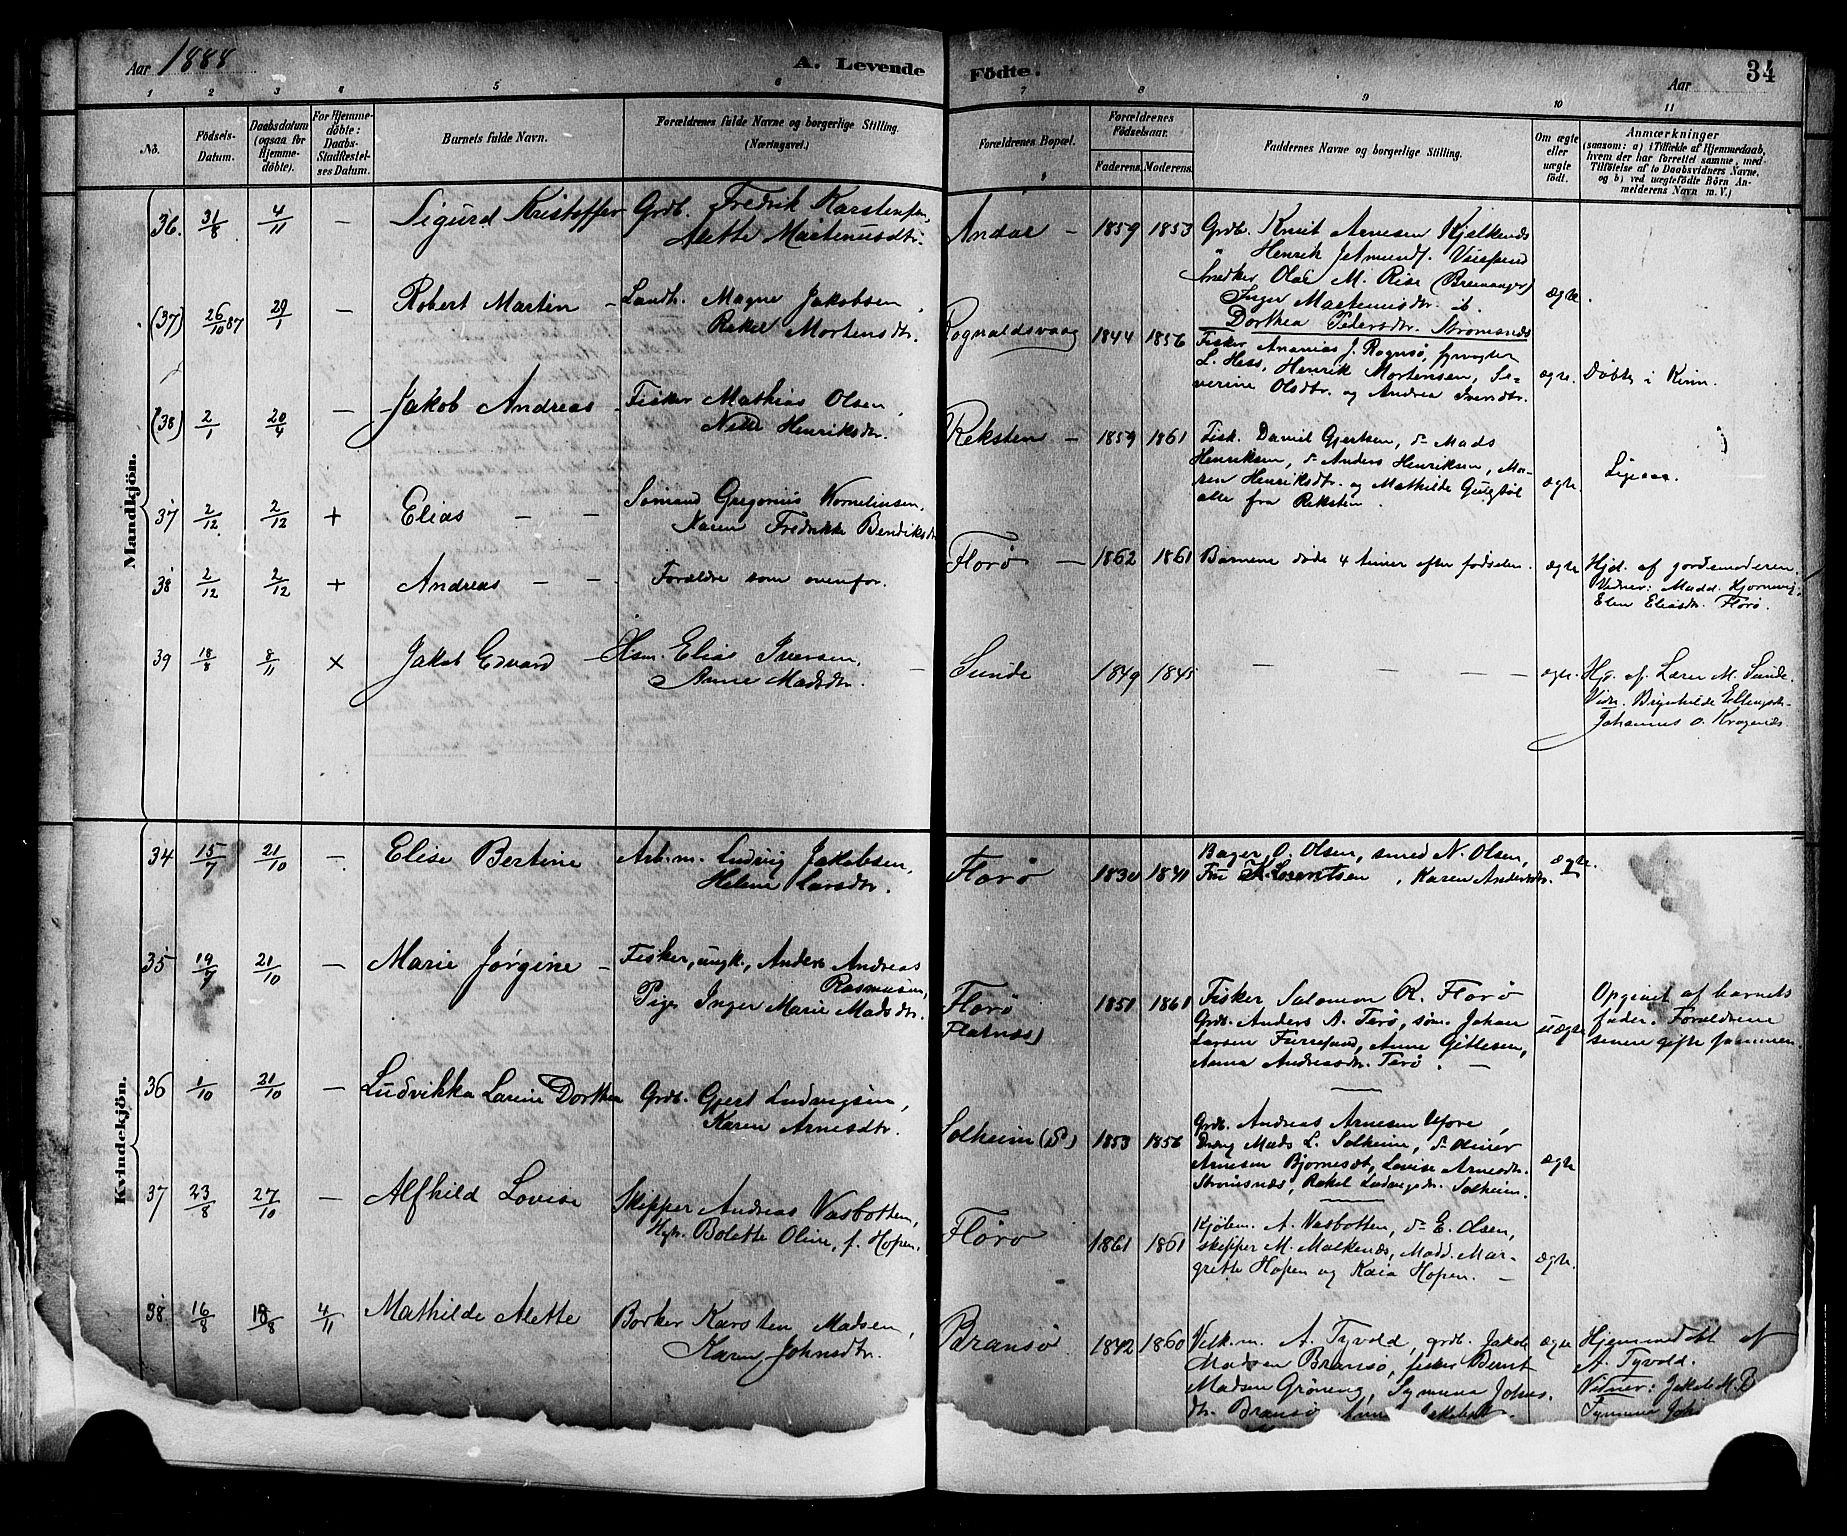 Aar 1888 A. Levende Födte. Aar 34
1 2 3 4 5 6 7 8 9 10 11
No.
Födsels-
Datum.
Daabsdatum
(ogsaa for
Hjemme-
döbte).
For Hjemme-
döbte:
Daabs-
Stadfæstel-
ses Datum.
Barnets fulde Navn.
Forældrenes fulde Navne og borgerlige Stilling.
(Næringsvei.)
Forældrenes Bopæl.
Forældrenes
Födselsaar.
Faderens. Moderens.
Faddernes Navne og borgerlige Stilling.
Om ægte
eller
uægte
födt.
Anmærkninger
(saasom: a) i Tilfælde af Hjemmedaab,
hvem der har forrettet samme, med
Tilföielse af to Daabsvidners Navne,
og b) ved uægtefödte Börn An-
melderens Navn m. V.)
Mandkjön.
36. 31/8 4/11 – Sigurd Kristoffer Grdb. Fredrik Karstensen,
Alette Martenusdtr.
Andal – 1859 1853 Grdb. Knut Arnesen Kjelkenes
Henrik
Snedker Olai M. Rise (Bremanger)
Inger Martenusdtr. ib.
Dorthea Pedersdtr. Strømsnes
ægte.
(37) 26/10 87 29/1 – Robert Martin – Landh. Magne Jakobsen,
Rakel Mortensdtr.
Rognaldsvaag 1844 1856 Fisker Ananias J. Rognsø,
L. Hess, Henrik Mortensen, Se-
verine Olsdtr. og Andrea Iversdtr.
ægte. Døbte i Kinn.
(38) 2/1 20/4 – Jakob Andreas – Fisker Mathias Olsen,
Nille Henriksdtr.
Reksten – 1859 1861 Fisk. Daniel Gjertsen, do Mads
Henriksen, do Anders Henriksen, Ma-
ren Henriksdtr. og Mathilde Gulestøl
alle fra Reksten.
ægte. Ligesaa.
37 2/12 2/12 + Elias – – Sømand Gregorius Kornelinsen,
Karen Fredrikke Bendiksdtr
Florø – 1862 1861 Barnene døde 4 timer efter fødselen. ægte Hjd. af jordemoderen.
Vidner: Madd. Hjornevig,
Elen Eliasdtr. Florø.
38 2/12 2/12 + Andreas – – Forældre som ovenfor.
39 18/8 8/11 × Jakob Edvard – Hsm. Elias Iversen,
Anne Madsdtr.
Sunde 1849 1845 – – – ægte. Hjd. af Lærer M. Sunde.
Vidn. Brynhilde Ellingsdtr
Johannes O. Kragenæs
Kvindekjön.
34 15/7 21/10 – Elise Bertine Arb.m. Ludvig Jakobsen,
Helene Larsdtr.
Florø 1830 1841 Bager O. Olsen, smed N. Olsen,
Fru K. Lorentsen, Karen Andersdtr.
ægte.
35 19/7 21/10 – Marie Jørgine – Fisker, ungk., Anders Andreas
Rasmusen,
Pige Inger Marie Madsdtr.
Florø
Flatnæs)
1851 1861 Fisker Salomon R. Florø
Grdb. Anders A. Terø, søm. Johan
Larsen Furesund, Anne Gitlesen,
Anna Andreasdtr. Terø. –
uægte Opgivet af barnets
fader. Forældrene
senere gifte sammen
36 1/10 21/10 – Ludvikka Lavine Dorthea Grdb. Gjert Ludvigsen,
Karen Arnesdtr.
Solheim (S) 1853 1856 Grdb. Andreas Arnesen Ufore,
Dreng Mads L. Solheim, do Oliner
Arnesen Bjørnesæt, Lovise Arnesdtr.
Strømsnæs, Rakel Ludvigsdtr. Solheim.
ægte
37 23/8 27/10 – Alfhild Lovise Skipper Andreas Vasbotten,
Hstr. Bolette Oline, f. Hopen.
Florø 1861 1861 Kjøbm. A. Vasbotten, do E. Olsen,
skipper M. Malkenæs, Madd. Mar-
grethe Hopen og Kaia Hopen. –
ægte.
38 16/8 18/8 4/11 Mathilde Alette Børker Karsten Madsen,
Karen Johnsdtr.
Bransø 1842 1860 Velk.m. A. Tyvold, grdb. Jakob
Madsen Bransø, fisker Bernt
Madsen Grøneng, Symuna Johns-
dtr. Bransø
ægte Hjemmedøbt af
A. Tyvold.
Vidner: Jakob M. B
Symuna Joh